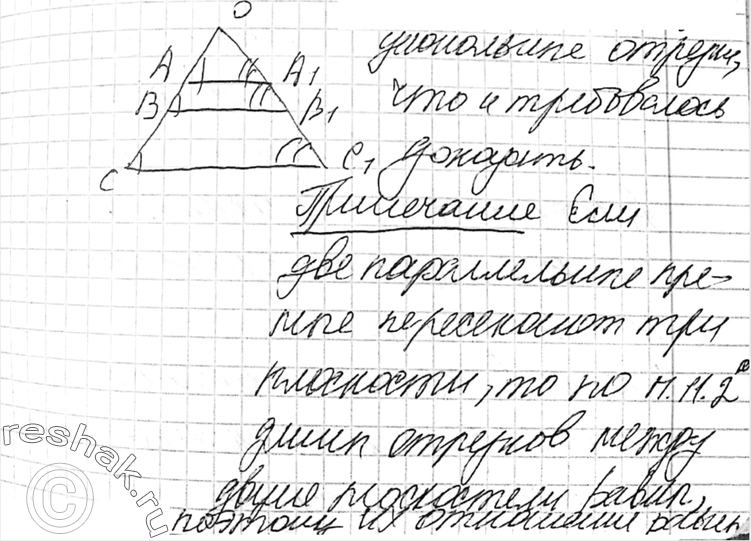 O
A A1
B B1
C C1
отрезки,
что и требовалось
доказать.
Примечание Если
две параллельные пря-
мые пересекают три
плоскости, то по п.п.2°
длин отрезков между
двумя плоскостями равны,
поэтому их отношения равны
reshak.ru
©